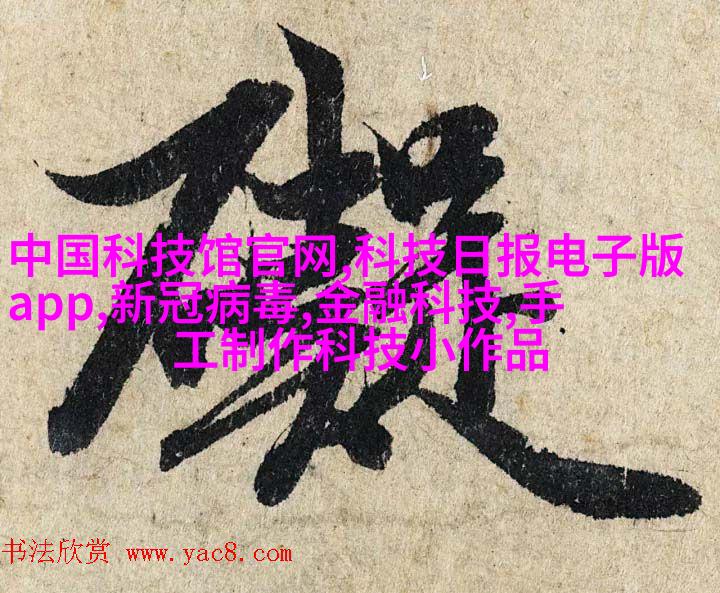 礙
中国科技馆官网,科技日报电子版
app,新冠病毒,金融科技,手
工制作科技小作品
书法欣赏 www.yac8.com